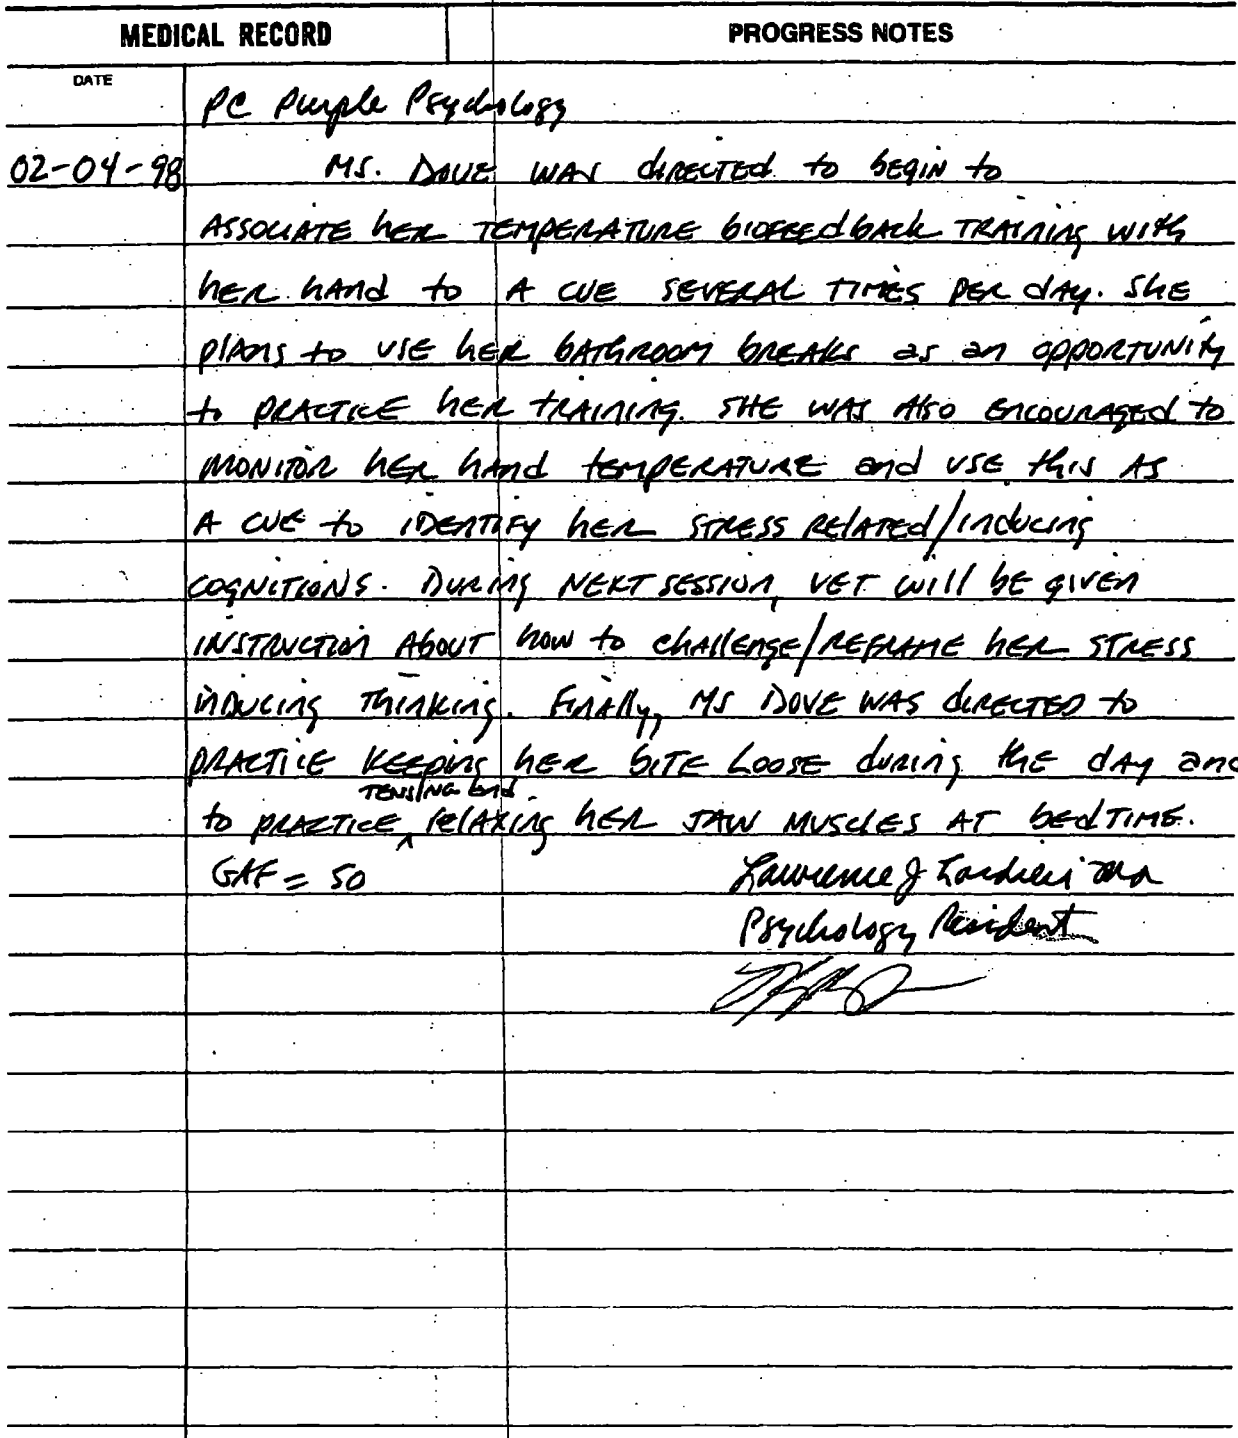 MEDICAL RECORD PROGRESS NOTES
DATE
PC Purple Psychology
02-04-98 MS. DOVE WAS directed to begin to
ASSOCIATE her TEMPERATURE biofeedback TRAINING with
her hand to A CUE SEVERAL TIMES PER day. She
plans to USE her bathroom breaks as an opportunity
to PRACTICE her training. SHE WAS Also Encouraged to
MONITOR her hand temperature and USE this AS
A CUE to IDENTIFY her STRESS Related/inducing
COGNITIONS. During NEXT SESSION, VET will be given
INSTRUCTION About how to challenge/REFRAME her STRESS
inducing Thinking. Finally, MS DOVE WAS directed to
PRACTICE Keeping her BITE LOOSE during the day and
TENSING and
to PRACTICE ^ relaxing her JAW MUSCLES AT bedTIME.
GAF = 50 Lawrence J
Psychology Resident